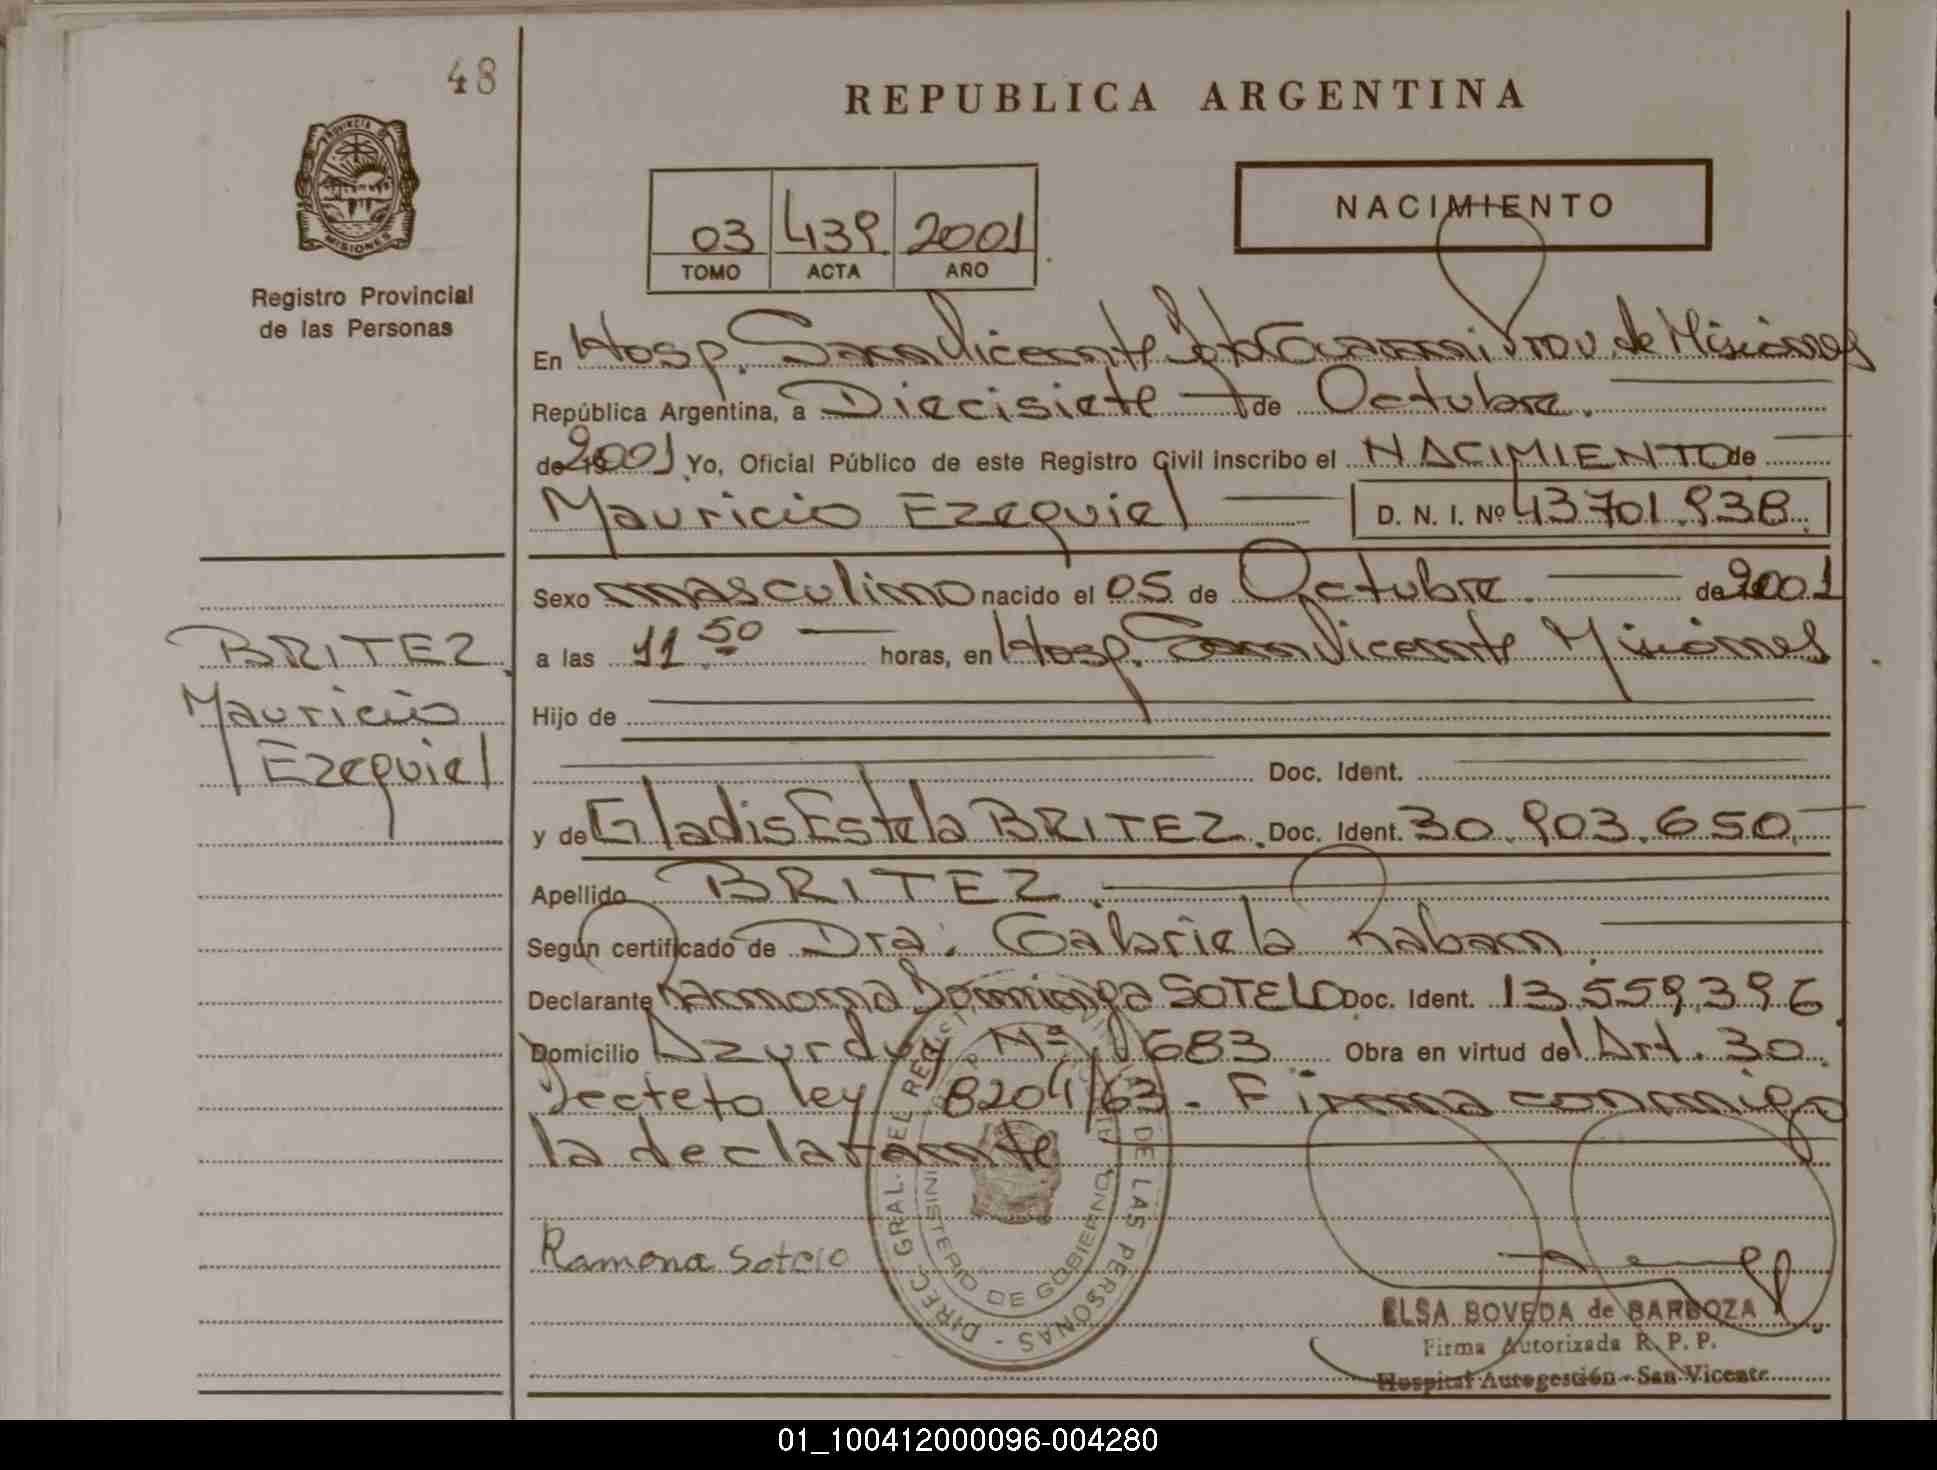 48
REPUBLICA ARGENTINA
PROVINCIA DE
MISIONES
Registro Provincial
de las Personas
03 439 2001
TOMO ACTA AÑO
NACIMIENTO
En Hosp. San Vicente Dpto Guarani Prov. de Misiones
República Argentina, a Diecisiete de Octubre.
de 2001 Yo, Oficial Público de este Registro Civil inscribo el NACIMIENTO de
Mauricio Ezequiel D. N. I. Nº 43701.938.
Sexo masculino nacido el 05 de Octubre. de 2001
a las 11.50 horas, en Hosp. San Vicente Misiones
BRITEZ
Mauricio
Ezequiel
Hijo de
Doc. Ident.
y de Gladis Estela BRITEZ. Doc. Ident. 30.903.650.
Apellido BRITEZ.
Según certificado de Dra. Gabriela
Declarante Ramona Dominga SOTELO Doc. Ident. 13.559.396
Domicilio Azurduy Nº 1683 Obra en virtud del Art. 30.
Decreto ley 8204/63. Firma conmigo
la declarante
Ramona Sotelo
DIREC. GRAL. DEL REGISTRO DE LAS PERSONAS
MINISTERIO DE GOBIERNO
ELSA BOVEDA de BARBOZA
Firma Autorizada R. P. P.
Hospital Autogestión - San Vicente
01_100412000096-004280